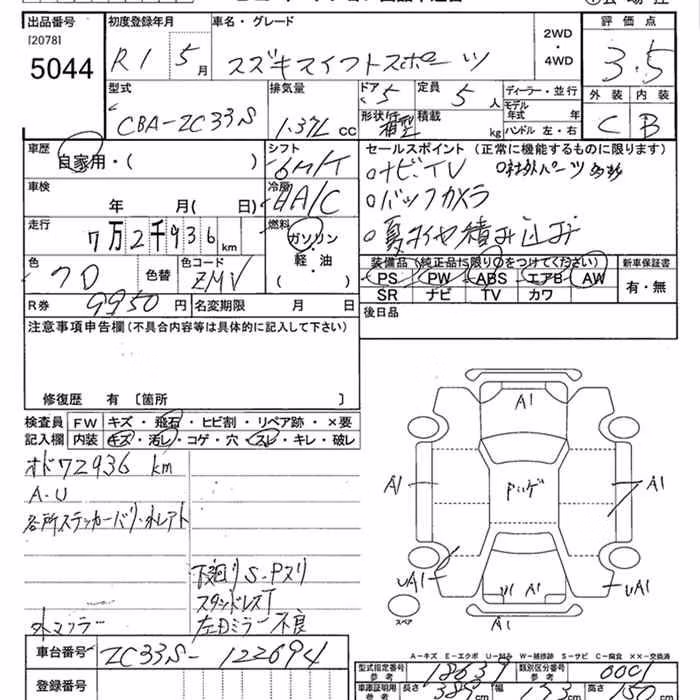 出品番号 初度登録年月 車名・グレード 2WD・4WD 評価点
[2078]
5044 R1 5月 スズキスイフトスポーツ 3.5
型式 排気量 ドア 定員 ディーラー・並行 外装 内装
CBA-ZC33S 1.37L cc 5 5人 モデル年式 年 C B
形状 箱型 積載 kg ハンドル 左・右
車歴 シフト セールスポイント (正常に機能するものに限ります)
自家用・( ) 6M/T ナビ、TV 社外パーツ多数
車検 冷房 バックカメラ
年 月( 日) A/C 夏タイヤ積み込み
走行 燃料
7万2千936km ガソリン
軽・油
( )
装備品 (純正品は限り○をつけてください) 新車保証書
色 色替 色コード PS PW ABS エアB AW 有・無
クロ ZMV SR ナビ TV カワ
R券 9950円 名変期限 月 日 後日品
注意事項申告欄 (不具合内容等は具体的に記入して下さい)
修復歴 有 〔箇所 〕
検査員 FW キズ・飛石・ヒビ割・リペア跡・×要
記入欄 内装 キズ・汚レ・コゲ・穴・スレ・キレ・破レ
オド72936 km
A-U
各所ステッカーハリ・ホレアト
下回りS・Pスリ
スタッドレスT
外マフラー 左Dミラー不良
A1
A1 A1
UA1 A1 UA1
A1
スペア
車台番号 ZC33S-122694
A-キズ E-エクボ U-凹み W-補修跡 S-サビ C-腐食 XX-交換済
登録番号
型式指定番号 参考 18637 類別区分番号 参考 0001
車庫証明用 参考 長さ cm 幅 173 cm 高さ 150 cm